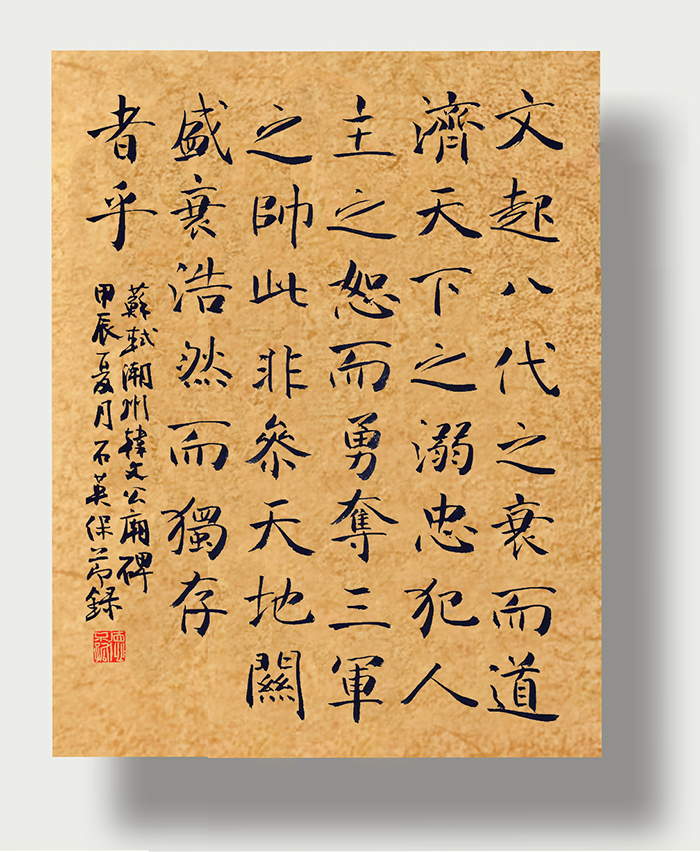 文起八代之衰而道
濟天下之溺忠犯人
主之怒而勇奪三軍
之帥此非參天地關
盛衰浩然而獨存
者乎
蘇軾潮州韓文公廟碑
甲辰夏月石英保節録